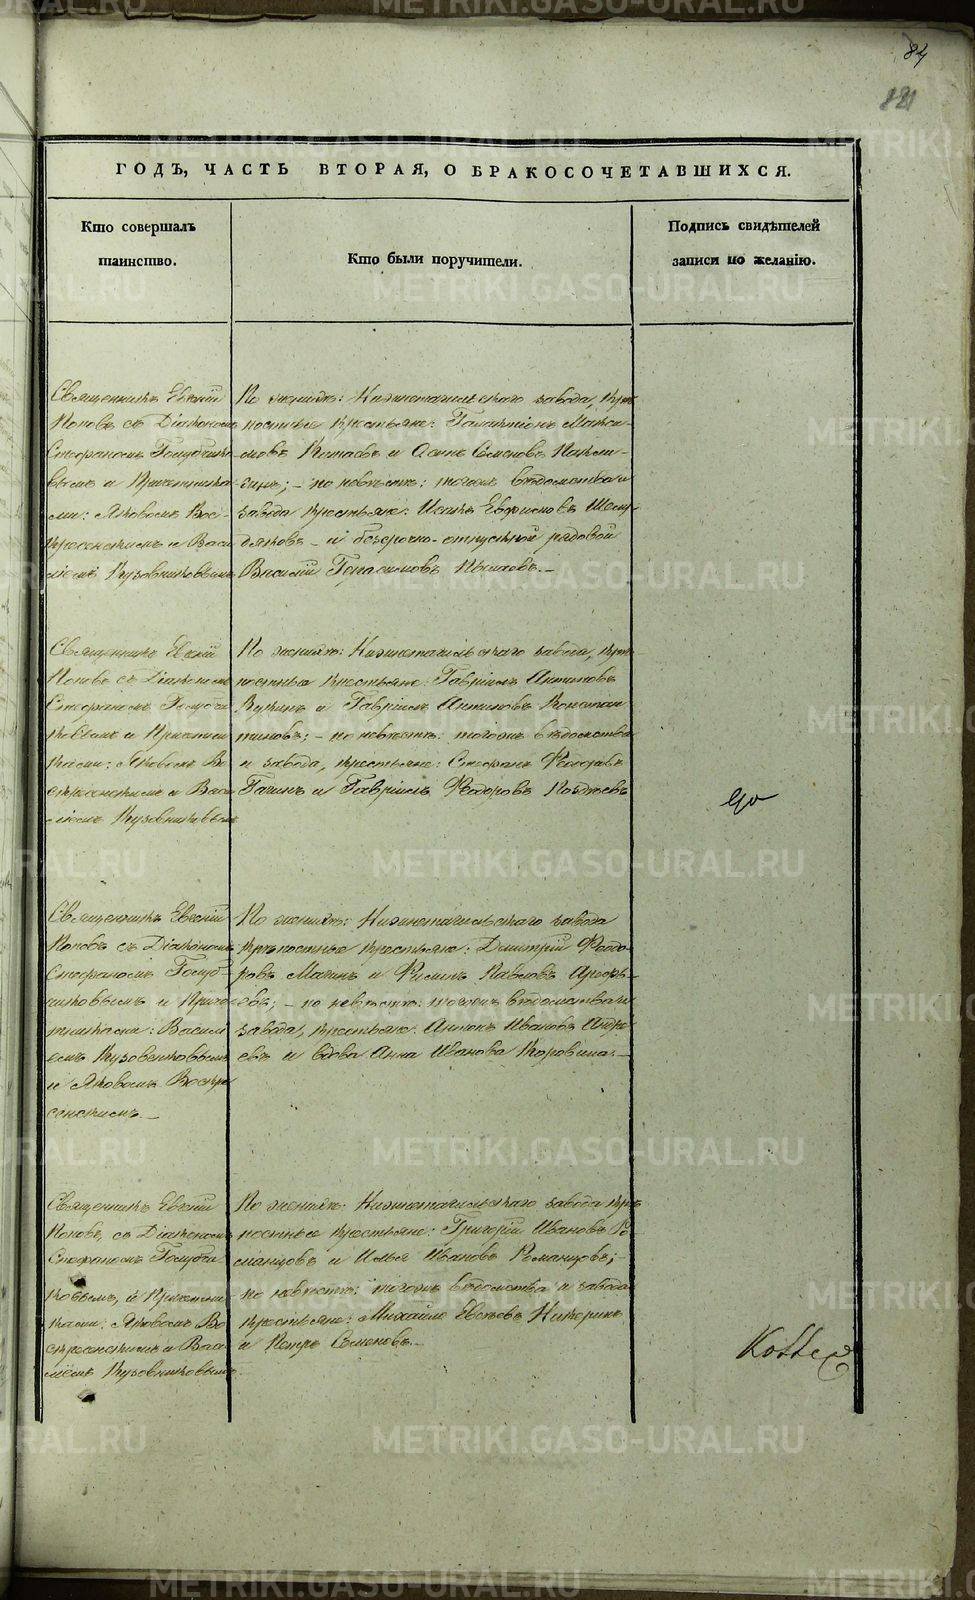 84
821
ГОДЪ, ЧАСТЬ ВТОРАЯ, О БРАКОСОЧЕТАВШИХСЯ.
Кто совершалъ таинство.
Кто были поручители.
Подпись свидѣтелей записи по желанію.
Священникъ Евгеній
Поповъ съ Діакономъ
Стефаномъ Голубчи-
ковымъ и Причетника-
ми: Яковомъ Вос-
кресенскимъ и Васи
ліемъ Кузовниковымъ
По женихѣ: Нижнетагильскаго завода, крѣ
постные крестьяне: Галактіонъ Макси-
мовъ Китаевъ и Осипъ Семеновъ
по невѣстѣ: тогожъ вѣдомства и
завода крестьяне: Исакъ
и безсрочно-отпускной рядовой
Василій Герасимовъ
Священникъ Евгеній
Поповъ съ Діакономъ
Стефаномъ Голубчи
ковымъ и Причетни
ками: Яковомъ Во
скресенскимъ и Васи
ліемъ Кузовниковымъ
По женихѣ: Нижнетагильскаго завода, крѣ
постные крестьяне: Гавріилъ Антиповъ
и Гавріилъ Антиповъ Констан
тиновъ; - по невѣстѣ: тогожъ вѣдомства
и завода, крестьяне: Стефанъ Феодоровъ
и Гавріилъ Феодоровъ
Священникъ Евгеній
Поповъ съ Діакономъ
Стефаномъ Голуб-
чиковымъ и Приче-
тниками: Василі
емъ Кузовниковымъ
и Яковомъ Воскре
сенскимъ. -
По женихѣ: Нижнетагильскаго завода
крѣпостные крестьяне: Дмитрій Феодо
ровъ и Филипъ Павловъ Арефь-
евъ; - по невѣстѣ: тогожъ вѣдомства и
завода, крестьяне: Антонъ Ивановъ Андре
евъ и вдова Анна Иванова Коровина. -
Священникъ Евгеній
Поповъ, съ Діакономъ
Стефаномъ Голубчи
ковымъ, и Причетни
ками: Яковомъ Во
скресенскимъ и Васи
ліемъ Кузовниковымъ.
По женихѣ: Нижнетагильскаго завода крѣ
постные крестьяне: Григорій Ивановъ Ро
манцовъ и Илья Ивановъ Романцовъ;
по невѣстѣ: тогожъ вѣдомства и завода
крестьяне: Михайло
и Петръ Семеновъ. -
METRIKI.GASO-URAL.RU